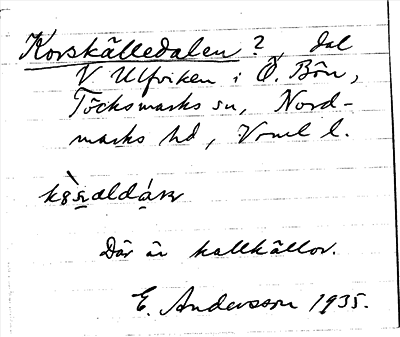 Korskälledalen?, dal
V Ulfviken i Ö. Bön,
Töcksmarks sn, Nord-
marks hd, Vrml l.
Där är kallkällor.
E. Andersson 1935.